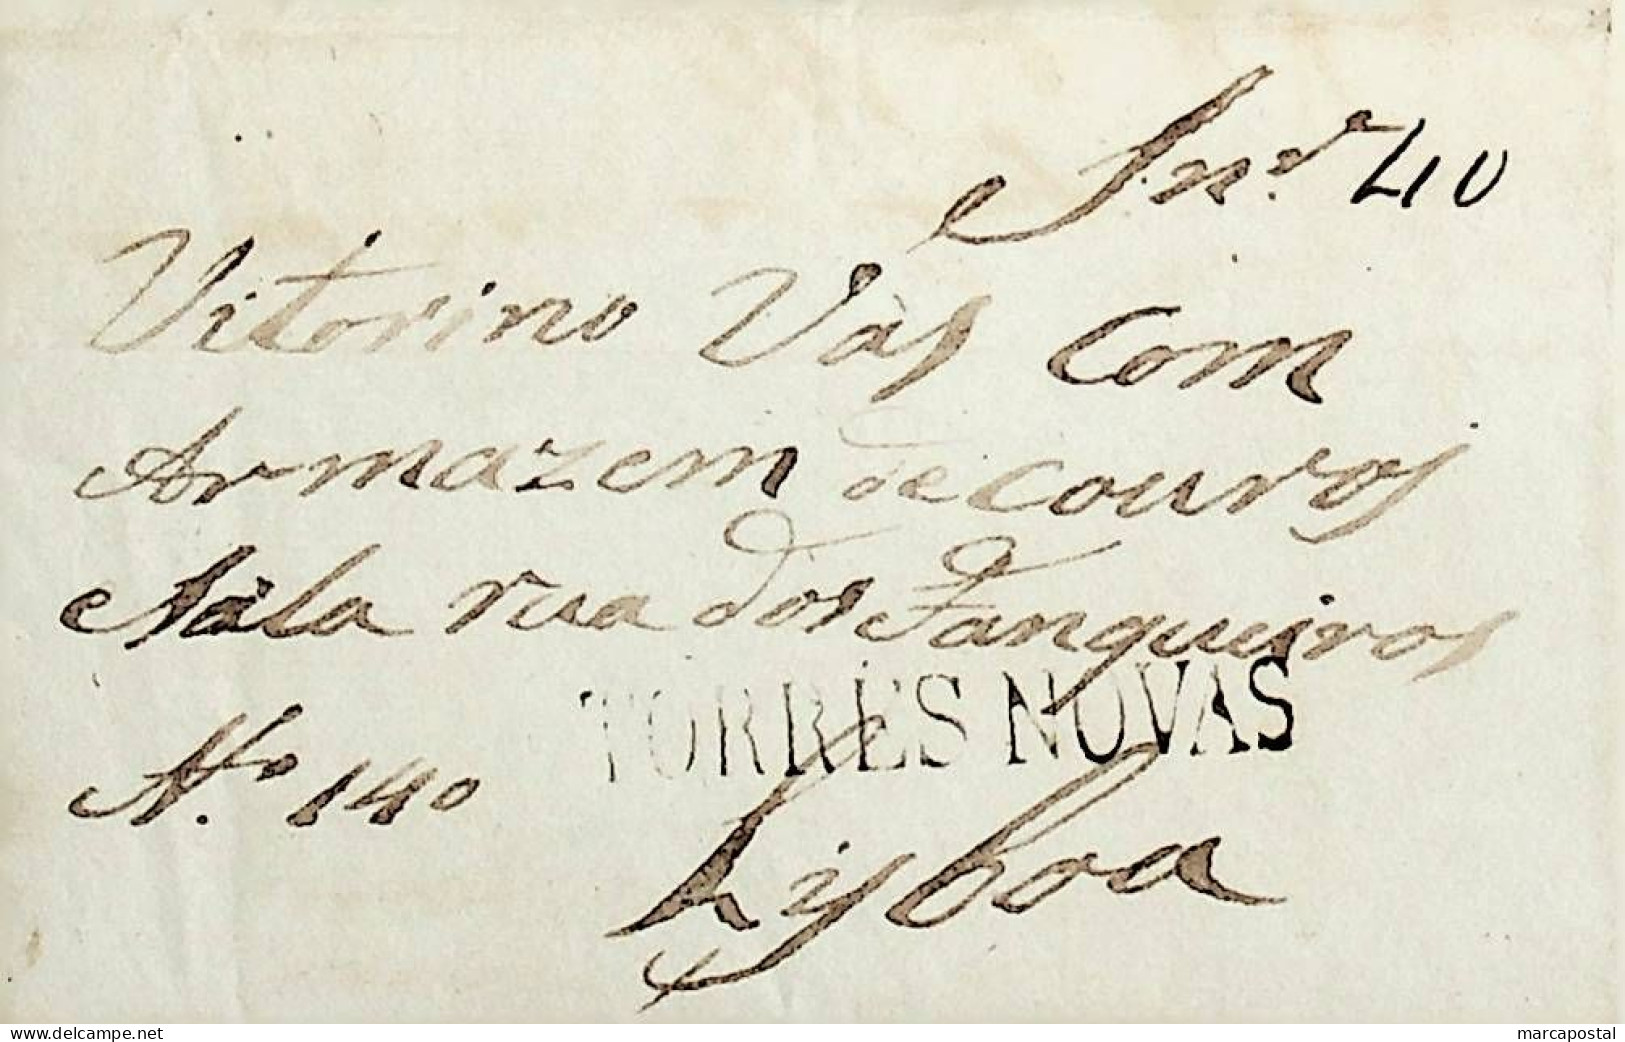 Snr. 40
Vitorino Vas com
Armazem de couros
Nala rua dos Fanqueiros
TORRES NOVAS
N.º 140
Lysboa
www.delcampe.net
marcapostal